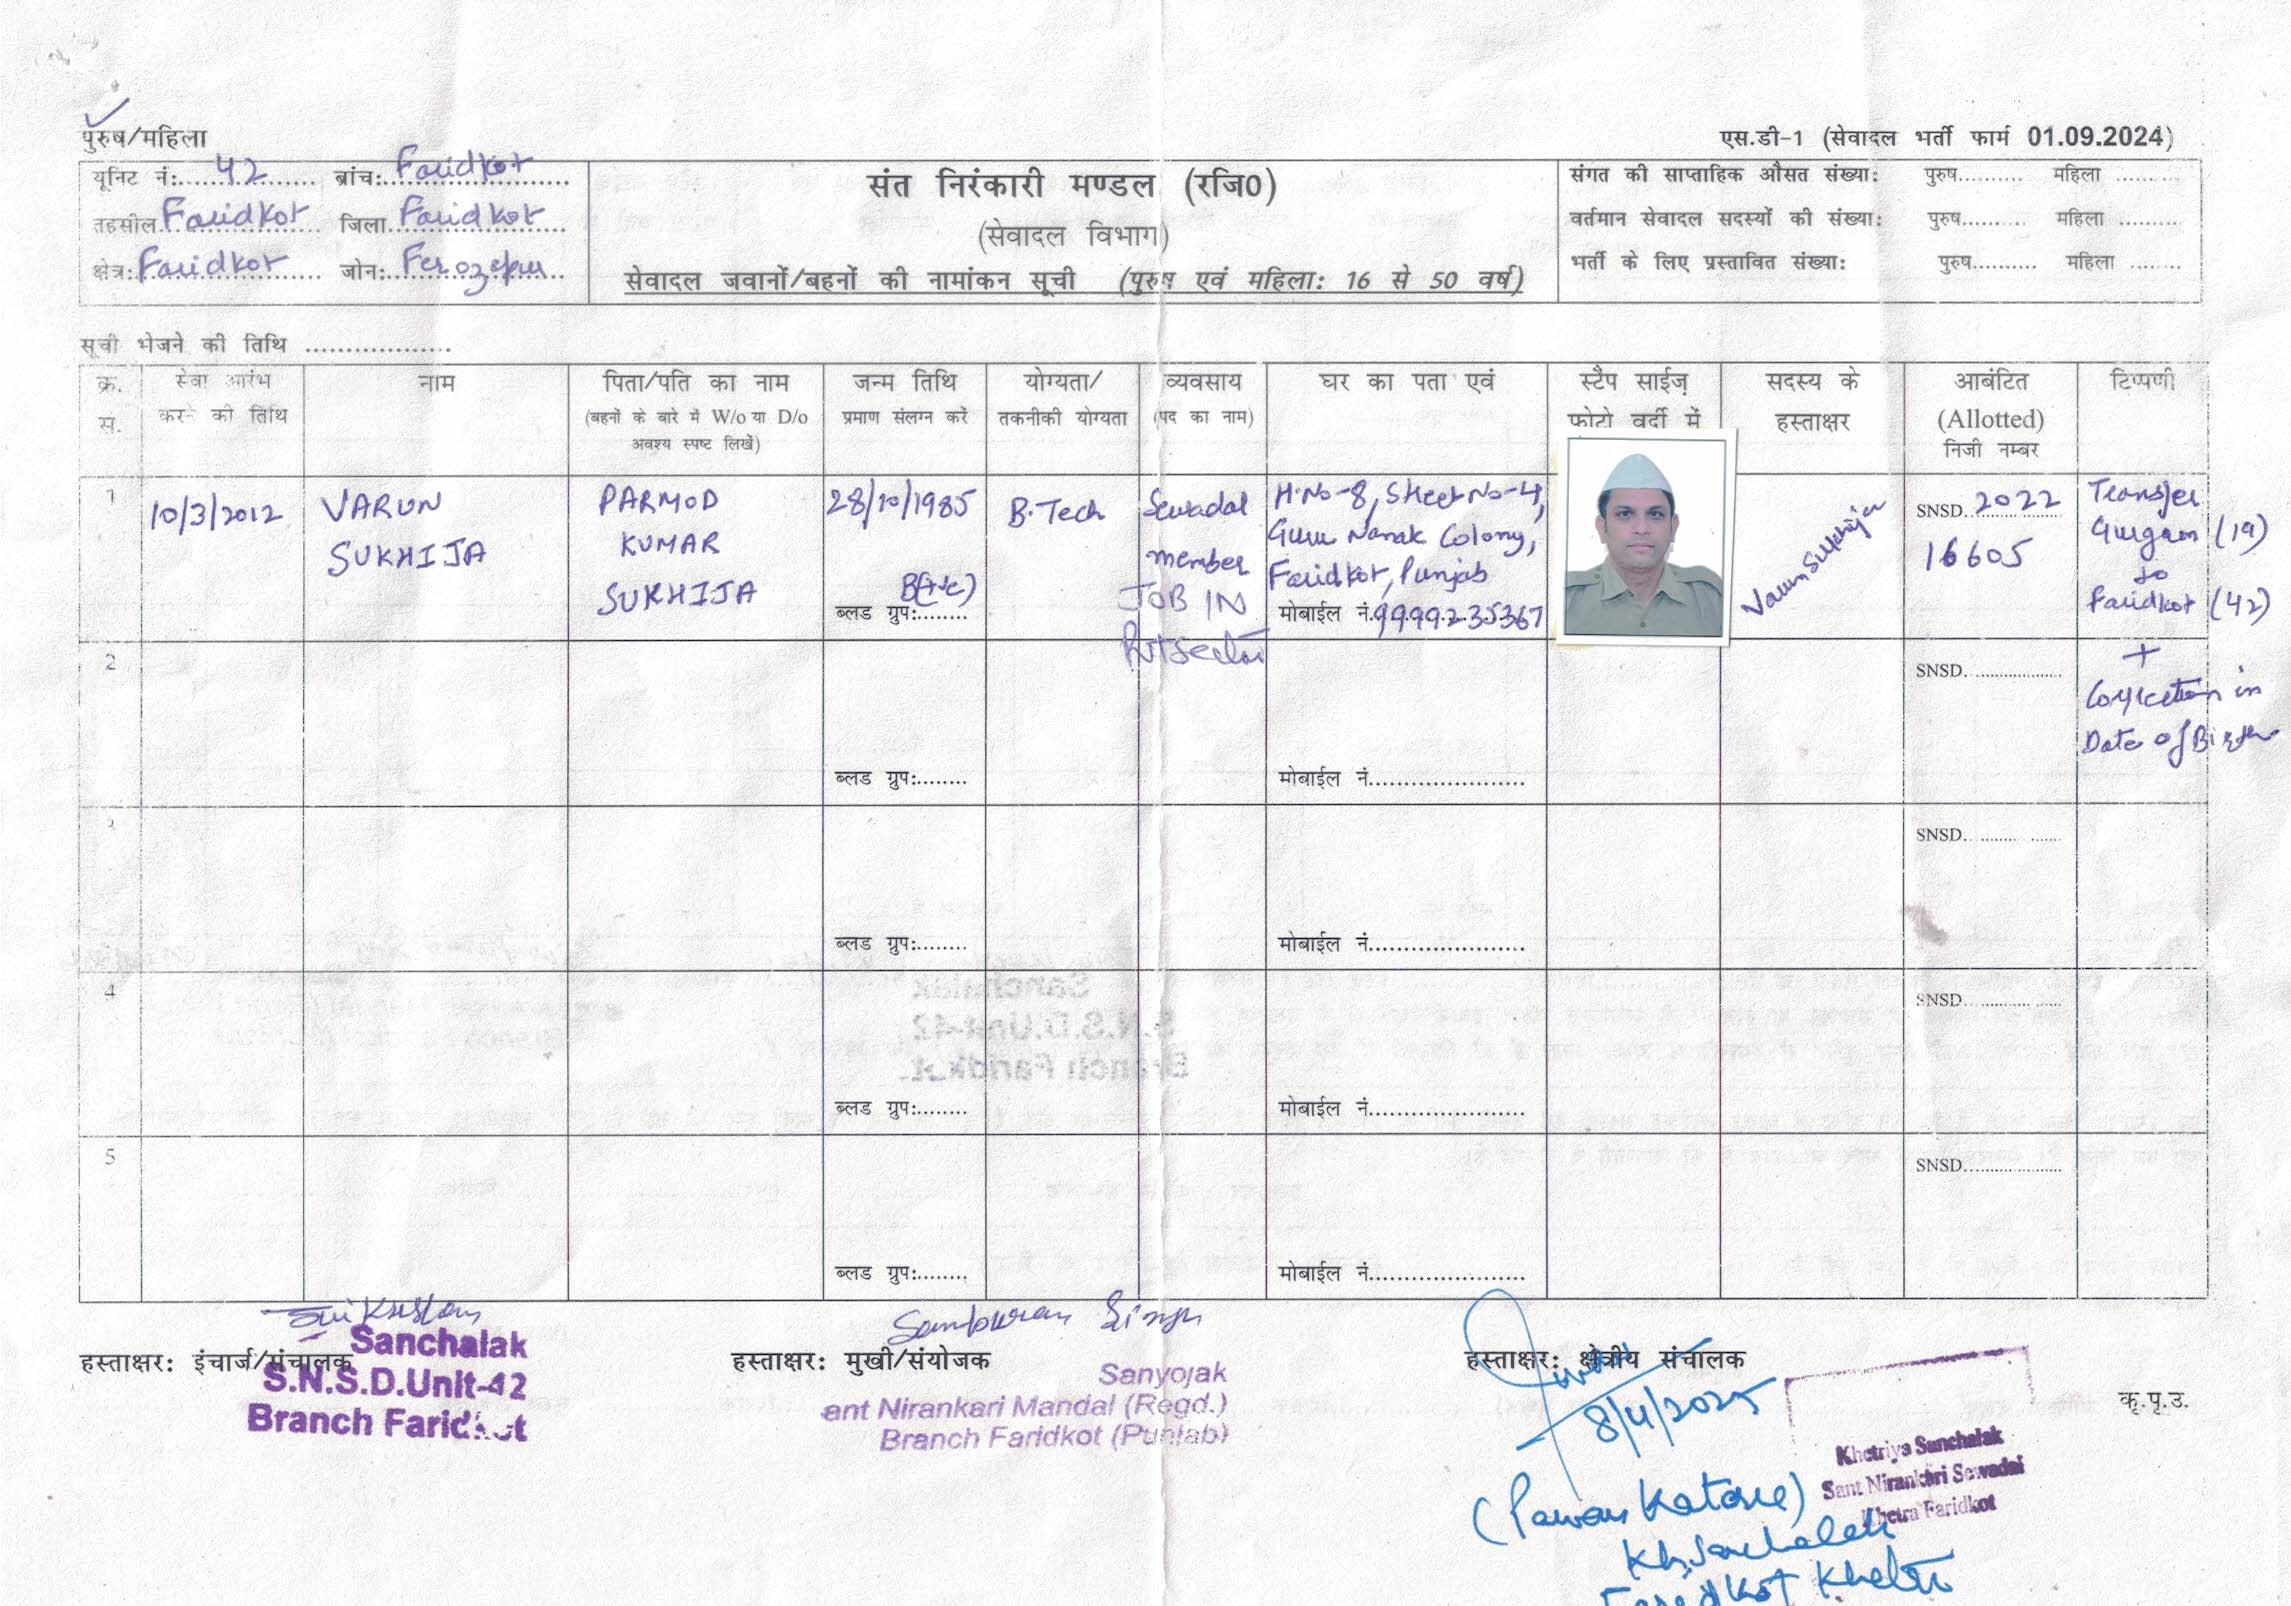 पुरुष/महिला
एस.डी-1 (सेवादल भर्ती फार्म 01.09.2024)
यूनिट नं:.....42............ ब्रांच:..Faridkot....................
तहसील Faridkot जिला Faridkot
क्षेत्र: Faridkot जोन: Ferozepur
संत निरंकारी मण्डल (रजि0)
(सेवादल विभाग)
सेवादल जवानों/बहनों की नामांकन सूची (पुरुष एवं महिला: 16 से 50 वर्ष)
संगत की साप्ताहिक औसत संख्या: पुरुष.......... महिला ..........
वर्तमान सेवादल सदस्यों की संख्या: पुरुष.......... महिला ..........
भर्ती के लिए प्रस्तावित संख्या: पुरुष.......... महिला ........
सूची भेजने की तिथि ..................
क्र. स.
सेवा आरंभ करने की तिथि
नाम
पिता/पति का नाम
(बहनों के बारे में W/o या D/o
अवश्य स्पष्ट लिखें)
जन्म तिथि
प्रमाण संलग्न करें
योग्यता/
तकनीकी योग्यता
व्यवसाय
(पद का नाम)
घर का पता एवं
स्टैंप साईज़
फोटो वर्दी में
सदस्य के
हस्ताक्षर
आबंटित
(Allotted)
निजी नम्बर
टिप्पणी
1
10/3/2012
VARUN
SUKHIJA
PARMOD
KUMAR
SUKHIJA
28/10/1985
B(+ve)
ब्लड ग्रुप:........
B.Tech
Sewadal
member
JOB IN
Pvt Sector
H.No-8, Street No-4,
Guru Nanak Colony,
Faridkot, Punjab
मोबाईल नं. 9999235367
Varun Sukhija
SNSD. 2022
16605
Transfer
Gurgaon (19)
to
Faridkot (42)
+
Correction in
Date of Birth
2
ब्लड ग्रुप:........
मोबाईल नं.......................
SNSD. .....................
3
ब्लड ग्रुप:........
मोबाईल नं.......................
SNSD.....................
4
ब्लड ग्रुप:........
मोबाईल नं.......................
SNSD.....................
5
ब्लड ग्रुप:........
मोबाईल नं.......................
SNSD.....................
हस्ताक्षर: इंचार्ज/संचालक
Sanchalak
S.N.S.D.Unit-42
Branch Faridkot
Sampuran Singh
हस्ताक्षर: मुखी/संयोजक
Sanyojak
ant Nirankari Mandal (Regd.)
Branch Faridkot (Punjab)
हस्ताक्षर: क्षेत्रीय संचालक
8/4/2025
(Pawan Katone)
Kh. Sanchalak
Faridkot Khetra
Khetriya Sanchalak
Sant Nirankari Sewadal
Khetra Faridkot
कृ.पृ.उ.